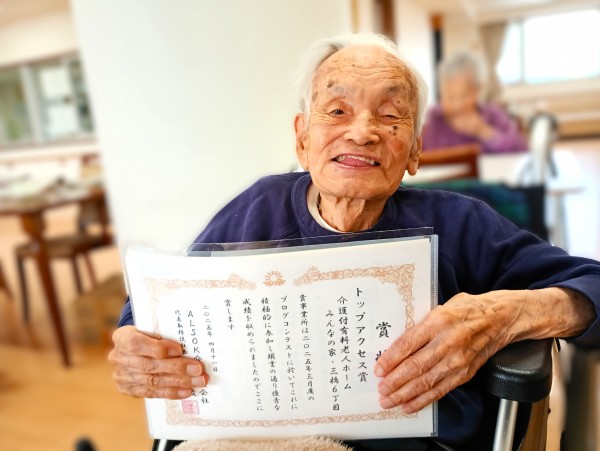 賞
トップアクセス賞
介護付有料老人ホーム
みんなの家・三橋6丁目
貴事業所は二〇二五年三月度の
ブログコンテストに於いてこれに
積極的に参加し頭書の通り優秀な
成績を収められましたのでここに
賞します
二〇二五年四月十一日
ALSOK
代表取締役